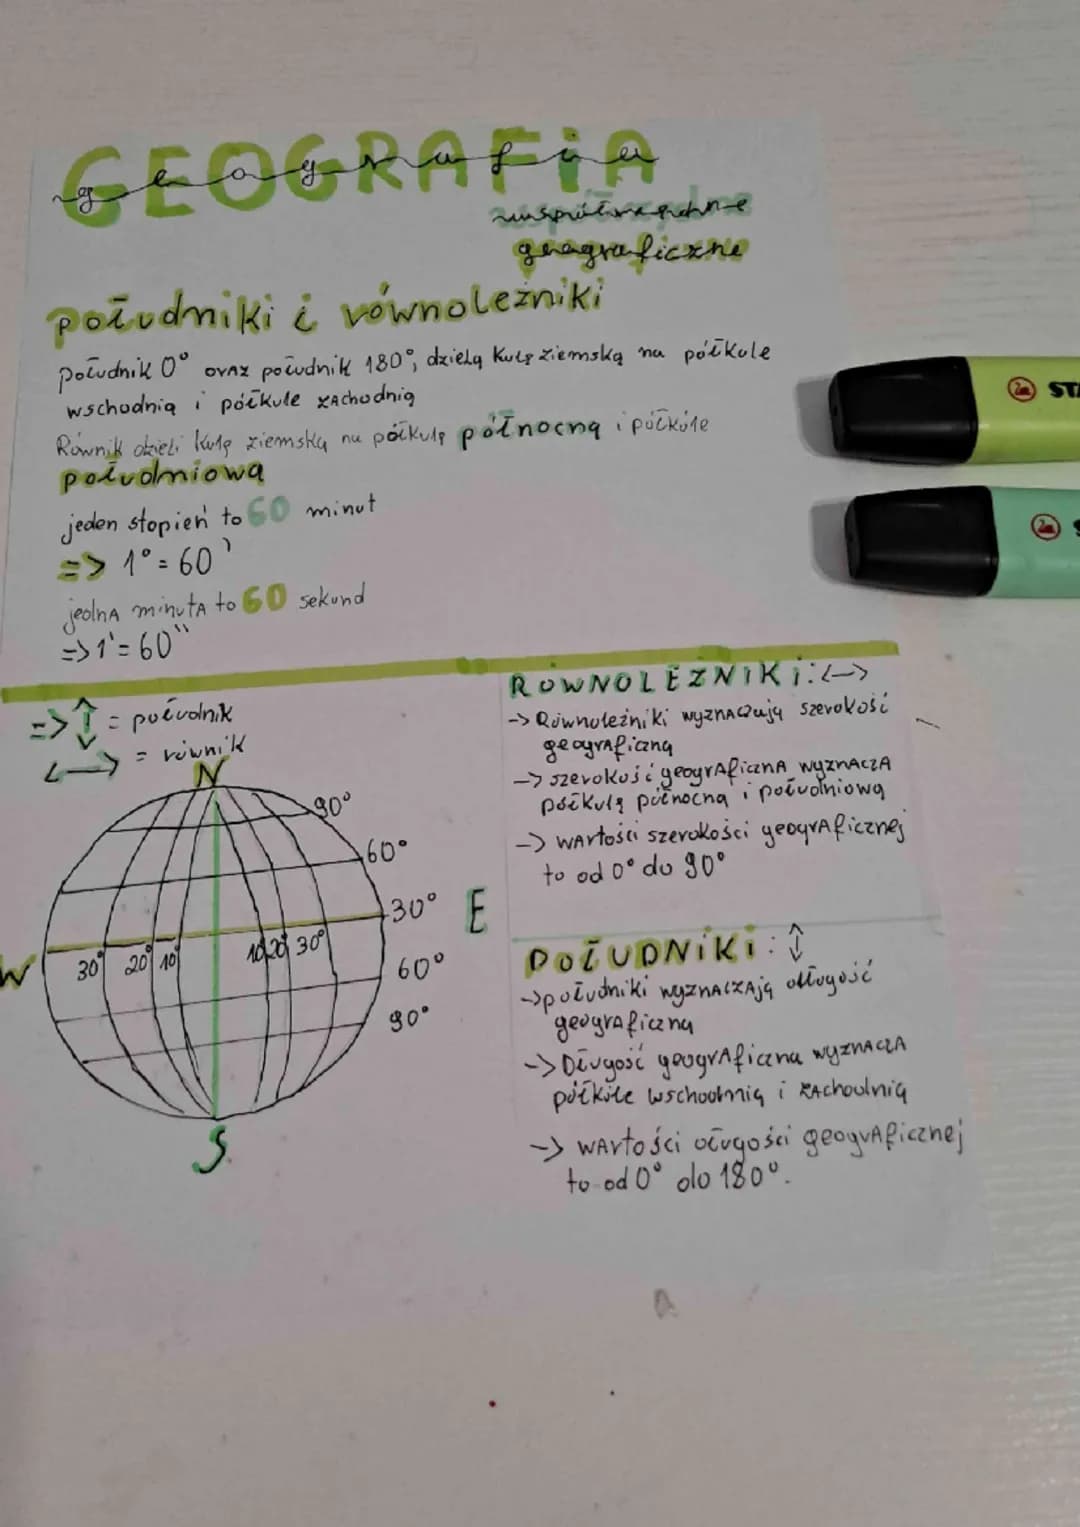 GEOGRAFIA
geografia
współrzędne
geograficzne
południki i równoleżniki
południk 0° oraz południk 180°, dzielą kulę ziemską na półkule
wschodnią i półkule zachodnią
Równik dzieli kulę ziemską na półkulę północną i półkule
południową
jeden stopień to 60 minut
=> 1° = 60'
jedna minuta to 60 sekund
=> 1' = 60''
=> ↕ = południk
<-> = równik
N
90°
60°
30°
E
W
30° 20° 10° 10° 20° 30°
60°
90°
S
RÓWNOLEŻNIKI: <->
-> Równoleżniki wyznaczują szerokość
geograficzną
-> szerokość geograficzna wyznacza
półkulę północną i południową
-> wartości szerokości geograficznej
to od 0° do 90°
POŁUDNIKI: ↕
-> południki wyznaczają długość
geograficzną
-> Długość geograficzna wyznacza
półkule wschodnią i zachodnią
-> wartości długości geograficznej
to od 0° do 180°.
STA
S